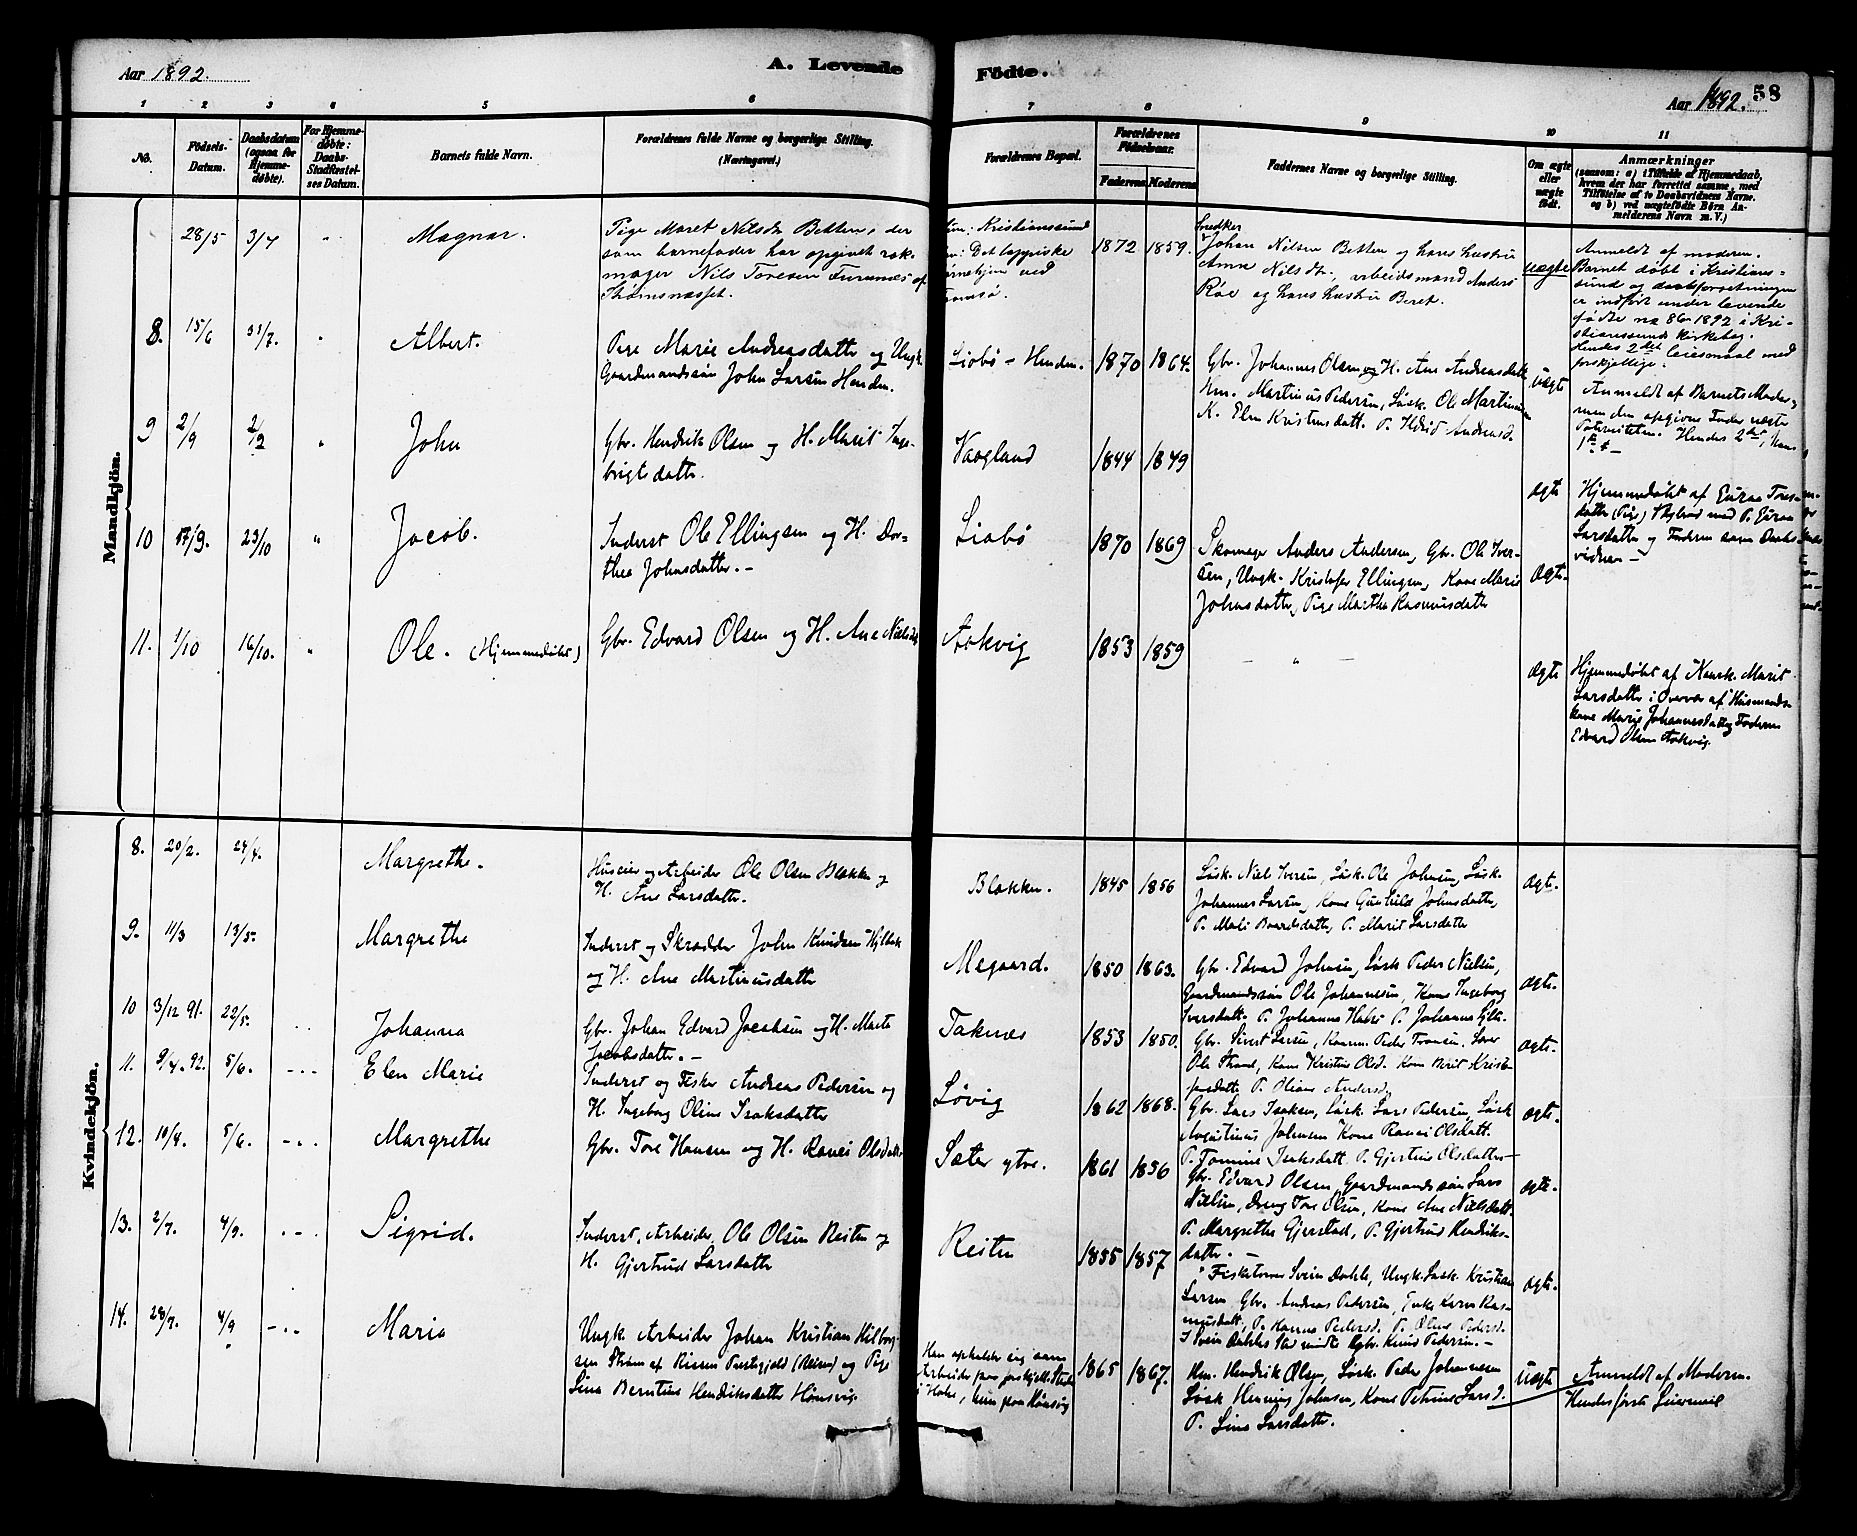 Aar 1892.
A. Levende
Födte.
Aar 1892.
58
1 2 3 4 5 6 7 8 9 10 11
No.
Födsels-
Datum.
Daabsdatum
(ogsaa for
Hjemme-
døbte).
For Hjemme-
døbte:
Daabs-
Stadfæstel-
ses Datum.
Barnets fulde Navn.
Forældrenes fulde Navne og borgerlige Stilling.
(Næringsvei.)
Forældrenes Bopæl.
Forældrenes
Födselsaar.
Faderens Moderens
Faddernes Navne og borgerlige Stilling.
Om ægte
eller
uægte
født.
Anmærkninger
(saasom: a) i Tilfælde af Hjemmedaab,
hvem der har forrettet samme, med
Tilføielse af to Daabsvidners Navne.
og b) ved uægtefødte Børn An-
melderens Navn m. V.)
Mandkjön.
28/5 3/7 " Magnar.
Pige Maret Nilsdr Betten, der
som barnefader har opgivet
mager Nils Toresen Furunes af
Strømsnæsset.
Kristianssund
Det lappiske
ved
Tromsø.
1872 1859.
Snedker
Johan Nilsen Betten og hans hustru
Anne Nilsdr., arbeidsmand Anders
Røe og hans hustru Beret.
uægte
Anmeldt af moderen.
Barnet døbt i Kristians-
sund og daabsforretningen
er indført under levende
fødte no 86 1892 i Kri-
stianssunds kirkebog.
Hendes 2det leiermaal med
forskjellige.
8. 15/6 31/7. " Albert.
Pige Marie Andreasdatter og Ungk.
Gaardmandssøn John Larsen Henden.
Liabø - Henden.
1870 1864.
Gbr. Johannes Olsen og H. Ane Andreasdatt
Hm. Martinus Pedersen, Løsk. Ole Martinsen
K. Elen Kristensdatt. P. Andreasd.
uægte
Anmeldt af Barnets Moder,
men den opgivne Fader negter
Paterniteten. Hendes 2det, hans
1ste
9 2/9 2/9 " John
Gbr. Hendrik Olsen og H. Marit Inge-
brigtsdatter.
Vaagland
1844 1849
ægte
Hjemmedøbt af Guraa Tores-
datter (Pige) med P. Guraa
Larsdatter og Faderen som Daabs-
vidner —
10 17/9. 23/10 " Jacob.
Inderst Ole Ellingsen og H. Doro-
thea Johnsdatter. —
Liabø
1870 1869
Skomager Anders Andersen, Gbr. Ole Iver-
sen, Ungk. Kristofer Ellingsen, Kone Marie
Johnsdatter, Pige Marthe Rasmusdatter
ægte.
11. 1/10 16/10. " Ole. (Hjemmedøbt)
Gbr. Edvard Olsen og H. Ane Nielsdat
Aakvig
1853 1859
— " —
ægte
Hjemmedøbt af Marit
Larsdatter i Overvær af Husmands-
kone Marie Johannesdatter og Faderen
Edvard Olsen Aakvig.
Kvindekjön.
8. 20/2. 24/4. Margrethe.
Huseier og Arbeider Ole Olsen Blakken og
H. Ane Larsdatter.
Blakken.
1845 1856
Løsk. Niel Iversen, Løsk. Ole Johnsen, Løsk.
Johannes Larsen, Kone Gunhild Johnsdatter,
P. Mali Baardsdatter, P. Marit Larsdatter
ægte.
9. 11/3 13/5. Margrethe
Inderst og Skrædder John Knudsen
og H. Ane Martinusdatter
Megaard.
1850 1863.
Gbr. Edvard Johnsen, Løsk Peder Nielsen,
Gaardmandssøn Ole Johannessen, Kone Ingeborg
Iversdatt. P. Johanna P. Johanna
ægte.
10 3/12 91. 22/5. Johanna
Gbr. Johan Edvard Jacobsen og H. Marte
Jacobsdatter. —
Taknes
1853 1850.
Gbr. Sivert Larsen, Peder Tronsen,
Ole Strand, Kone Kristine Olsd. Kone Berit Kristo-
fersdatter P. Oliane Andersd.
ægte.
11. 9/4. 92. 5/6. Elen Marie
Inderst og Fisker Andreas Pedersen og
H. Ingeborg Oline Isaksdatter
Løvig
1862 1868.
Gbr. Lars Isaksen, Løsk. Lars Pedersen, Løsk
Augustinus Johnsen Kone Ranei Olsdatt.
P. Tomine Isaksdatt. P. Gjertine Olsdatter —
ægte.
12. 10/4. 5/6. Margrethe
Gbr. Tore Hansen og H. Ranei Olsdatt
Sæter ytre.
1861 1856
Gbr. Edvard Olsen, Gaardmandssøn Lars
Nielsen, Dreng Tore Olsen, Kone Ane Nielsdatt.
P. Margrethe Gjerstad, P. Gjertrud Hendriks-
datter. —
ægte.
13. 2/7. 4/9. Sigrid.
Inderst, Arbeider, Ole Olsen Reiten og
H. Gjertrud Larsdatter
Reiten
1855 1857
Svein Dahle, Ungk. Løsk. Kristian
Larsen Gbr. Andreas Pedersen, Enke Karen Ras-
musdatt, P. Hanna Pedersd. P. Oline Pedersd.
I Svein Dahles Sted mødte Gbr. Knud Pedersen. —
ægte.
14. 28/7. 4/9 Maria
Ungk. Arbeider Johan Kristian Hilborg-
sen Strøm af Rissen Prestegjeld og Pige
Lina Berntine Hendriksdatter Hønsvig
Han opholder sig som
Arbeider paa forskjellige Steder
, hun paa Hønsvig
1865 1867.
Hm. Hendrik Olsen, Løsk. Peder Johannesen
Løsk Henning Johnsen, Kone Petrine Larsd.
P. Lina Larsdatter.
uægte
Anmeldt af Moderen.
Hendes første Leiermaal